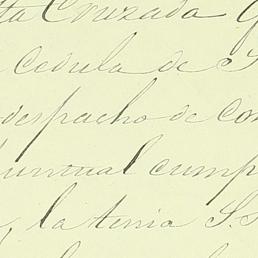 ta Cruzada
cedula de
despacho de con
cump
la tenia S.